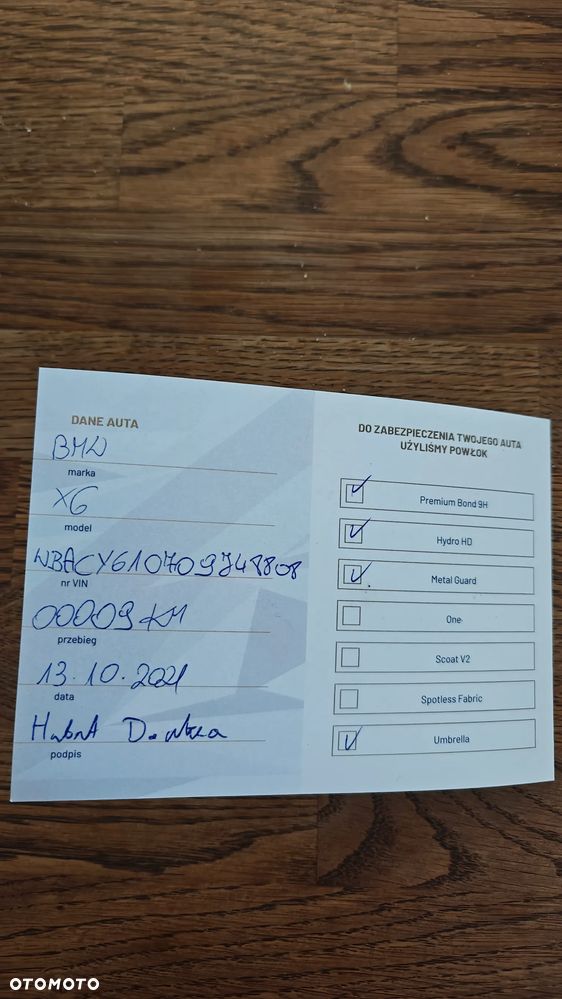 DANE AUTA
BMW
marka
X6
model
WBACY610709J48808
nr VIN
00009 KM
przebieg
13.10.2021
data
podpis
DO ZABEZPIECZENIA TWOJEGO AUTA
UŻYLIŚMY POWŁOK
Premium Bond 9H
Hydro HD
Metal Guard
One
Scoat V2
Spotless Fabric
Umbrella
OTOMOTO